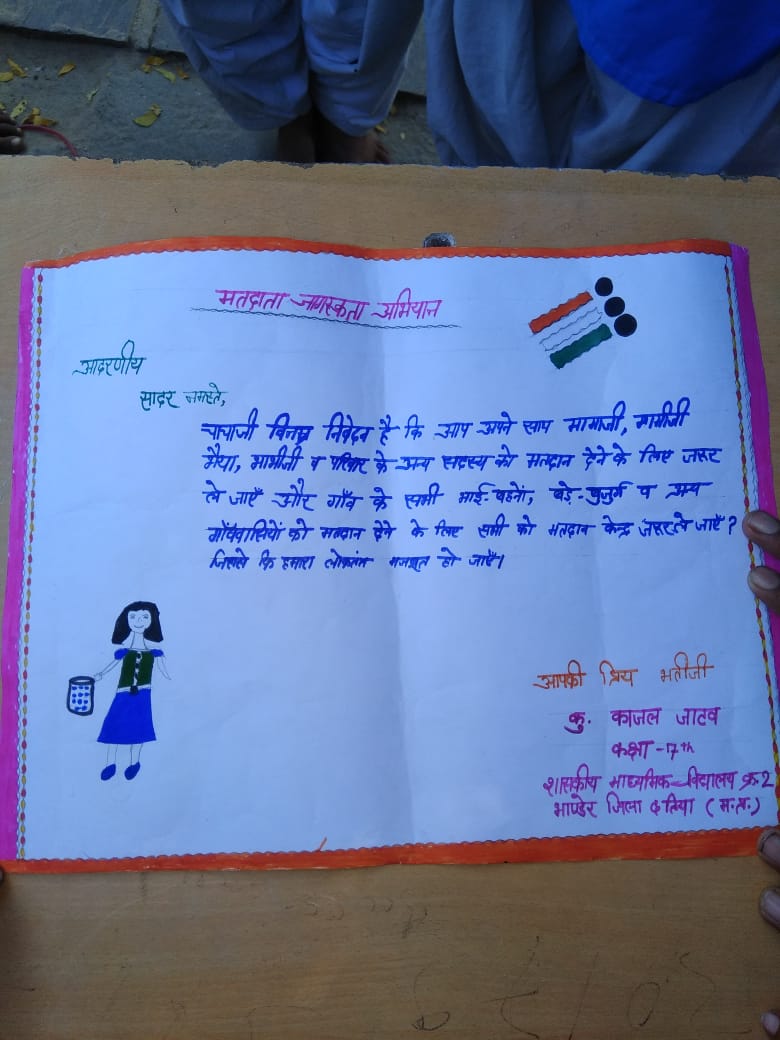 मतदाता जागरुकता अभियान
आदरणीय
सादर नमस्ते,
चाचाजी विनम्र निवेदन है कि आप अपने साथ मामाजी, मामीजी
भैया, भाभीजी व परिवार के अन्य सदस्य को मतदान देने के लिए जरूर
ले जाएँ और गाँव के सभी भाई-बहनों, बड़े-बुजुर्ग व अन्य
गाँववासियों को मतदान देने के लिए सभी को मतदान केन्द्र जरूर ले जाएँ?
जिससे कि हमारा लोकतंत्र मजबूत हो जाएँ।
आपकी प्रिय भतीजी
कु. काजल जाटव
कक्षा - 7th
शासकीय माध्यमिक विद्यालय क्र.2
भाण्डेर जिला दतिया (म.प्र.)